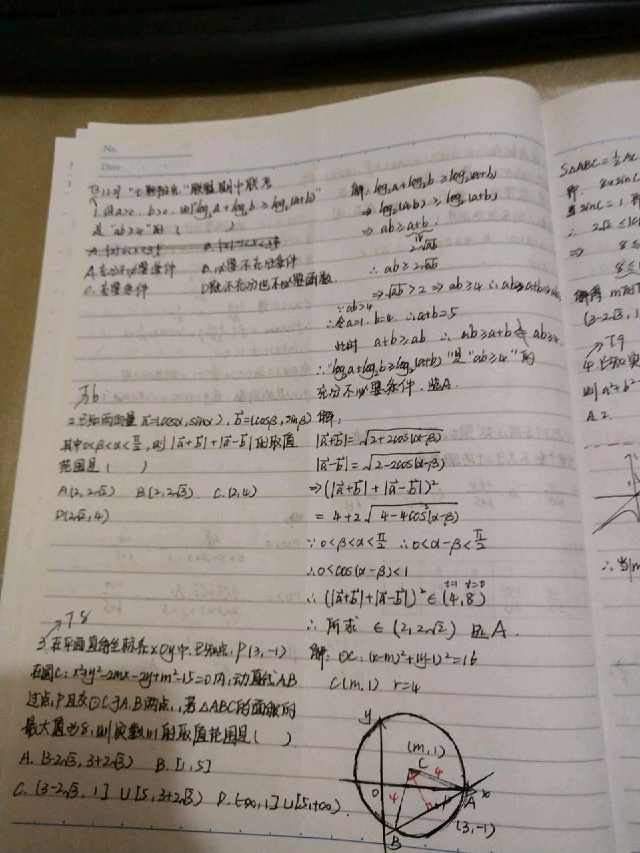 No.
Date
"七彩阳光"联盟期中联考
1. 设a>0, b>0, 则"log₂a+log₂b≥log₂(a+b)"
是"ab≥4"的 ( )
A. 充分不必要条件 B. 必要不充分条件
C. 充要条件 D. 既不充分也不必要条件
解: log₂a+log₂b≥log₂(a+b)
⇒ log₂(ab)≥log₂(a+b)
⇒ ab≥a+b
2√ab
∴ ab≥2√ab
⇒√ab≥2 ⇒ab≥4
∵ab≥4
∴令a=1, b=4 ∴a+b=5
此时 a+b≥ab ∴ab≥a+b ab≥4
∴"log₂a+log₂b≥log₂(a+b)"是"ab≥4"的
充分不必要条件. 选A.
T6
2. 已知向量 a=(cosα, sinα), b=(cosβ, sinβ)
其中0<β<α<π/2, 则|a+b|+|a-b|的取值
范围是 ( )
A. (2, 2√2) B. (2, 2√3) C. (2, 4)
D. (2√2, 4)
解:
|a+b|=√2+2cos(α-β)
|a-b|=√2-2cos(α-β)
⇒(|a+b|+|a-b|)²
=4+2√4-4cos²(α-β)
∵0<β<α<π/2 ∴0<α-β<π/2
∴0<cos(α-β)<1
∴(|a+b|+|a-b|)²∈(4,8)
∴所求∈(2, 2√2) 选A.
T8
3. 在平面直角坐标系xOy中, 已知点P(3,-1)
在圆C: x²+y²-2mx-2y+m²-15=0内, 动直线AB
过点P且交⊙C于A.B两点, 若△ABC的面积的
最大值为8, 则实数m的取值范围是 ( )
A. (3-2√3, 3+2√3) B. [1, 5]
C. (3-2√3, 1]∪[5, 3+2√3) D. (-∞, 1]∪[5, +∞)
解: ⊙C: (x-m)²+(y-1)²=16
C(m, 1) r=4
y
(m, 1)
C 4
4
O A x
(3, -1)
B
S△ABC=½AC
即
sinC=1
2√2≤
⇒
解得
(3-2√3, 1
T9
4. 已知实
则a²+b²
A. 2.
∴当|m